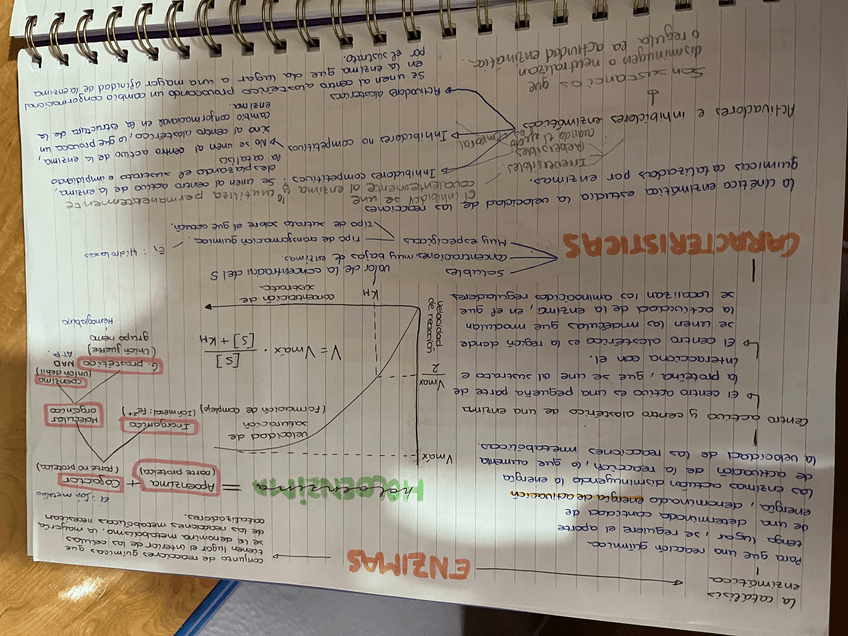 ENZIMAS
conjunto de reacciones químicas que
tienen lugar el interior de las células
se le denomina metabolismo, la mayoría
de las reacciones metabólicas necesitan
catalizadores.
La catálisis
enzimática
Para que una reacción química
tenga lugar, se requiere el aporte
de una determinada cantidad de
energía, denominado energía de activación
Las enzimas actúan disminuyendo la energía
de activación de la reacción, lo que aumenta
la velocidad de las reacciones metabólicas.
Centro activo y centro alostérico de una enzima
El centro activo es una pequeña parte de
la proteína, que se une al sustrato e
interacciona con él.
El centro alostérico es la región donde
se unen las moléculas que modulan
la actividad de la enzima, en el que
se localizan los aminoácidos reguladores
Holoenzima
=
Apoenzima
(parte proteica)
+
Cofactor
(parte no proteica)
ej: ion metálico
Inorgánica
Molecular
orgánica
coenzima
(unión débil)
NAD
ATP
G. prostético
(unión fuerte)
grupo hemo
Hemoglobina
Vmáx
Vmax
2
velocidad de
saturación
(Formación de complejo)
V = Vmax · [S]
[S] + KM
KM
concentración de
sustrato
valor de la concentración del S
CARACTERÍSTICAS
Solubles
concentraciones muy bajas de enzimas
Muy específicas
tipo de transformación química.
tipo de sustrato sobre el que actúan.
Ej: Hidrolasas
La cinética enzimática estudia la velocidad de las reacciones
químicas catalizadas por enzimas.
Activadores e inhibidores enzimáticos
Son sustancias que
disminuyen o neutralizan
o regula la actividad enzimática.
Irreversibles
El inhibidor se une
covalentemente al enzima y la inutiliza permanentemente
Reversibles
cuando el efecto
es temporal
Inhibidores competitivos: Se unen al centro activo de la enzima,
desplazando el sustrato e impidiendo
la catálisis
Inhibidores no competitivos
No se unen al centro activo de la enzima,
sino al centro alostérico, lo que provoca un
cambio conformacional en la estructura de la
enzima.
Activadores alostéricos
Se unen al centro alostérico provocando un cambio conformacional
en la enzima que da lugar a una mayor afinidad de la enzima
por el sustrato.